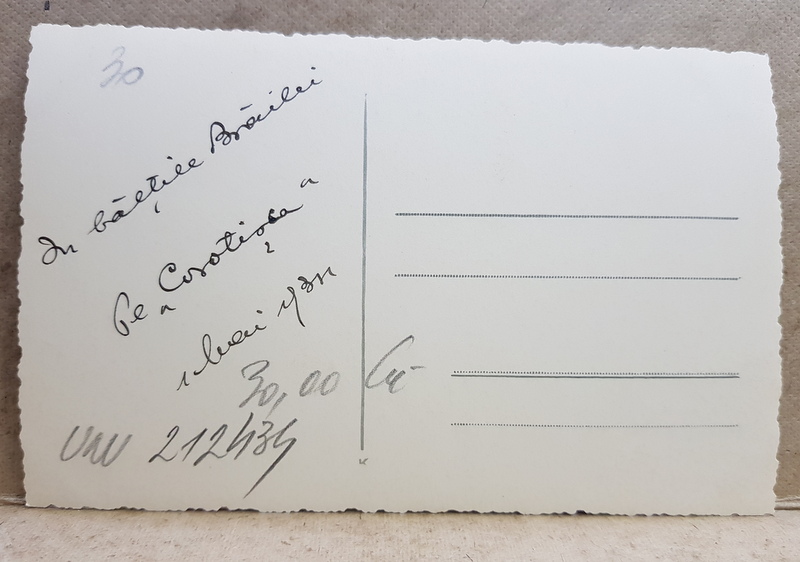 30
In bălțile Brăilei
Pe „Corotișca"
Mai
30,00
212434